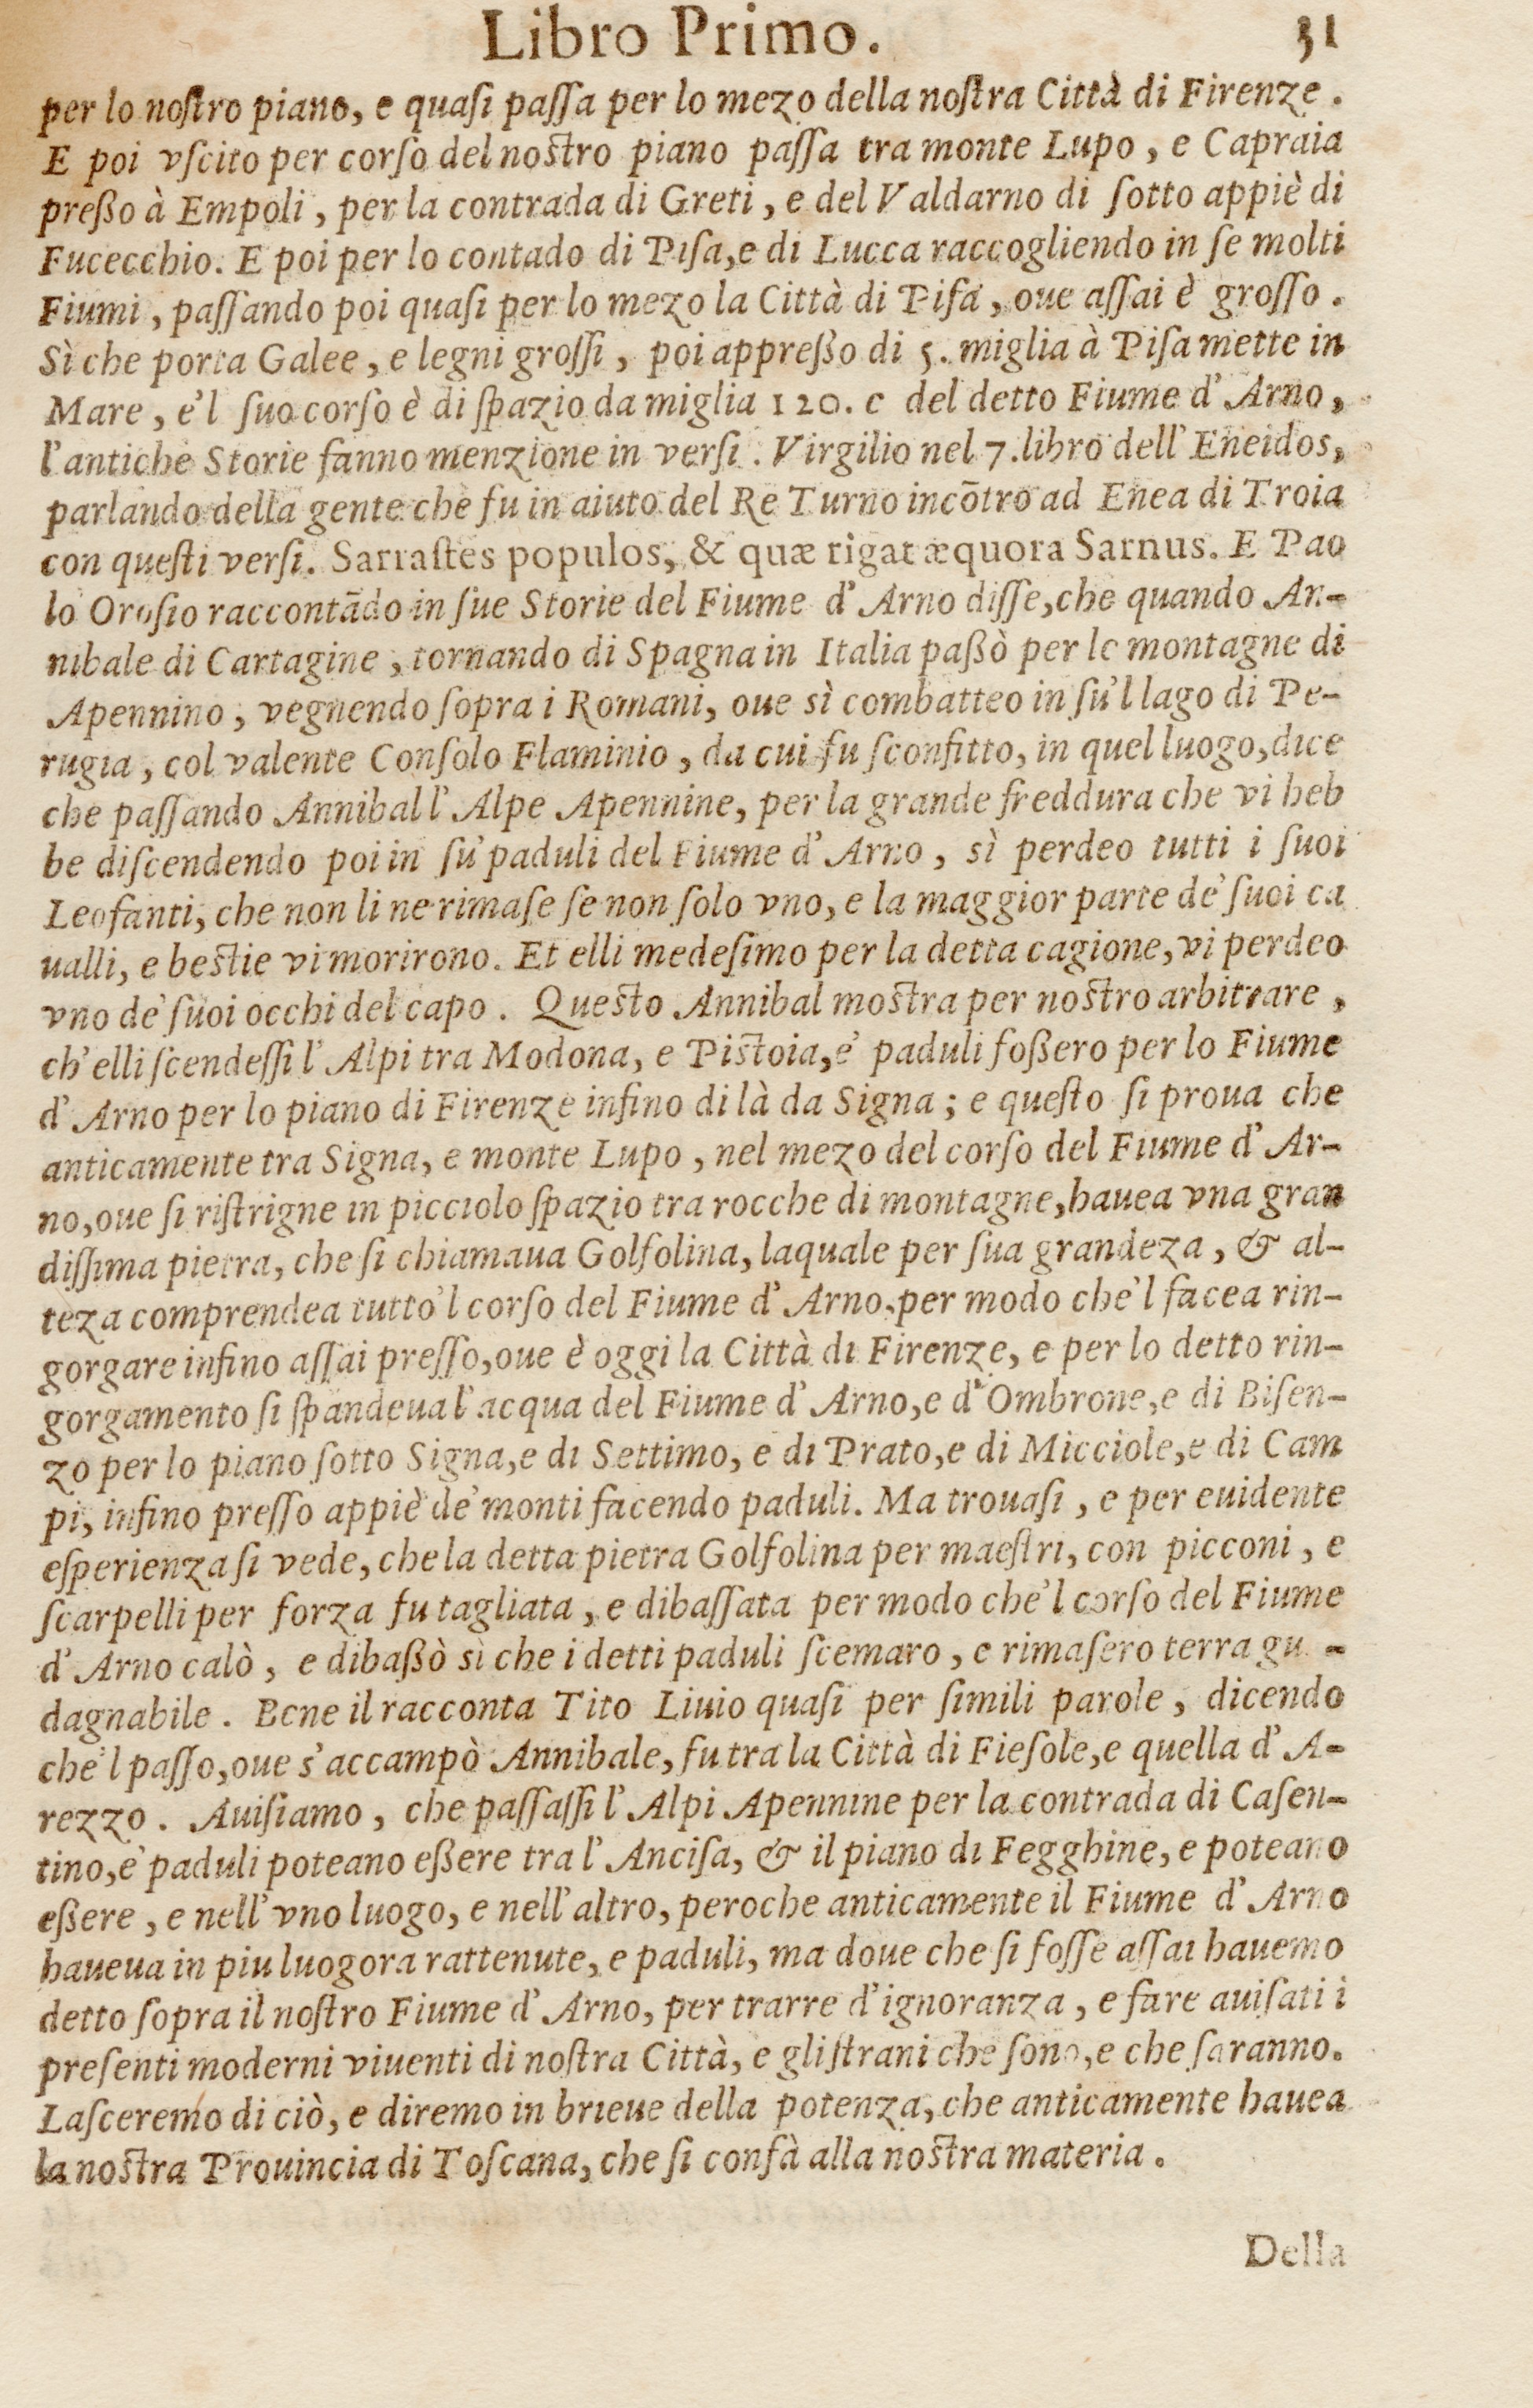 Libro Primo. 31
per lo noſtro piano, e quaſi paſſa per lo mezo della noſtra Città di Firenze.
E poi vſcito per corſo del noſtro piano paſſa tra monte Lupo, e Capraia
preßo à Empoli, per la contrada di Greti, e del Valdarno di ſotto appiè di
Fucecchio. E poi per lo contado di Piſa, e di Lucca raccogliendo in ſe molti
Fiumi, paſſando poi quaſi per lo mezo la Città di Piſa, oue aſſai è groſſo.
Sì che porta Galee, e legni groſſi, poi appreßo di 5. miglia à Piſa mette in
Mare, e'l ſuo corſo è di ſpazio da miglia 120. e del detto Fiume d'Arno,
l'antiche Storie fanno menzione in verſi. Virgilio nel 7. libro dell'Eneidos,
parlando della gente che fu in aiuto del Re Turno incōtro ad Enea di Troia
con queſti verſi. Sarraſtes populos, & quæ rigat æquora Sarnus. E Pao
lo Oroſio raccontādo in ſue Storie del Fiume d'Arno diſſe, che quando An-
nibale di Cartagine, tornando di Spagna in Italia paßò per le montagne di
Apennino, vegnendo ſopra i Romani, oue sì combatteo in ſu'l lago di Pe-
rugia, col valente Conſolo Flaminio, da cui fu ſconfitto, in quel luogo, dice
che paſſando Annibal l'Alpe Apennine, per la grande freddura che vi heb
be diſcendendo poi in ſu' paduli del Fiume d'Arno, sì perdeo tutti i ſuoi
Leofanti, che non li ne rimaſe ſe non ſolo vno, e la maggior parte de' ſuoi ca
ualli, e beſtie vi morirono. Et elli medeſimo per la detta cagione, vi perdeo
vno de' ſuoi occhi del capo. Queſto Annibal moſtra per noſtro arbitrare,
ch'elli ſcendeſſi l'Alpi tra Modona, e Piſtoia, e' paduli foßero per lo Fiume
d'Arno per lo piano di Firenze infino di là da Signa; e queſto ſi proua che
anticamente tra Signa, e monte Lupo, nel mezo del corſo del Fiume d'Ar-
no, oue ſi riſtrigne in picciolo ſpazio tra rocche di montagne, hauea vna gran
diſſima pietra, che ſi chiamaua Golfolina, laquale per ſua grandeza, & al-
teza comprendea tutto'l corſo del Fiume d'Arno, per modo che'l facea rin-
gorgare infino aſſai preſſo, oue è oggi la Città di Firenze, e per lo detto rin-
gorgamento ſi ſpandeua l'acqua del Fiume d'Arno, e d'Ombrone, e di Biſen-
zo per lo piano ſotto Signa, e di Settimo, e di Prato, e di Micciole, e di Cam
pi, infino preſſo appiè de' monti facendo paduli. Ma trouaſi, e per euidente
eſperienza ſi vede, che la detta pietra Golfolina per maeſtri, con picconi, e
ſcarpelli per forza fu tagliata, e dibaſſata per modo che'l corſo del Fiume
d'Arno calò, e dibaßò sì che i detti paduli ſcemaro, e rimaſero terra gu -
dagnabile. Bene il racconta Tito Liuio quaſi per ſimili parole, dicendo
che'l paſſo, oue s'accampò Annibale, fu tra la Città di Fieſole, e quella d'A-
rezzo. Auiſiamo, che paſſaſſi l'Alpi Apennine per la contrada di Caſen-
tino, e' paduli poteano eßere tra l'Anciſa, & il piano di Fegghine, e poteano
eßere, e nell'vno luogo, e nell'altro, peroche anticamente il Fiume d'Arno
haueua in piu luogora rattenute, e paduli, ma doue che ſi foſſe aſſai hauemo
detto ſopra il noſtro Fiume d'Arno, per trarre d'ignoranza, e fare auiſati i
preſenti moderni viuenti di noſtra Città, e gli ſtrani che ſono, e che ſaranno.
Laſceremo di ciò, e diremo in brieue della potenza, che anticamente hauea
la noſtra Prouincia di Toſcana, che ſi confà alla noſtra materia.
Della